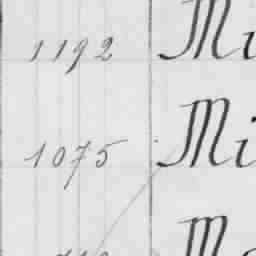 1192 Mi
1075 Mi